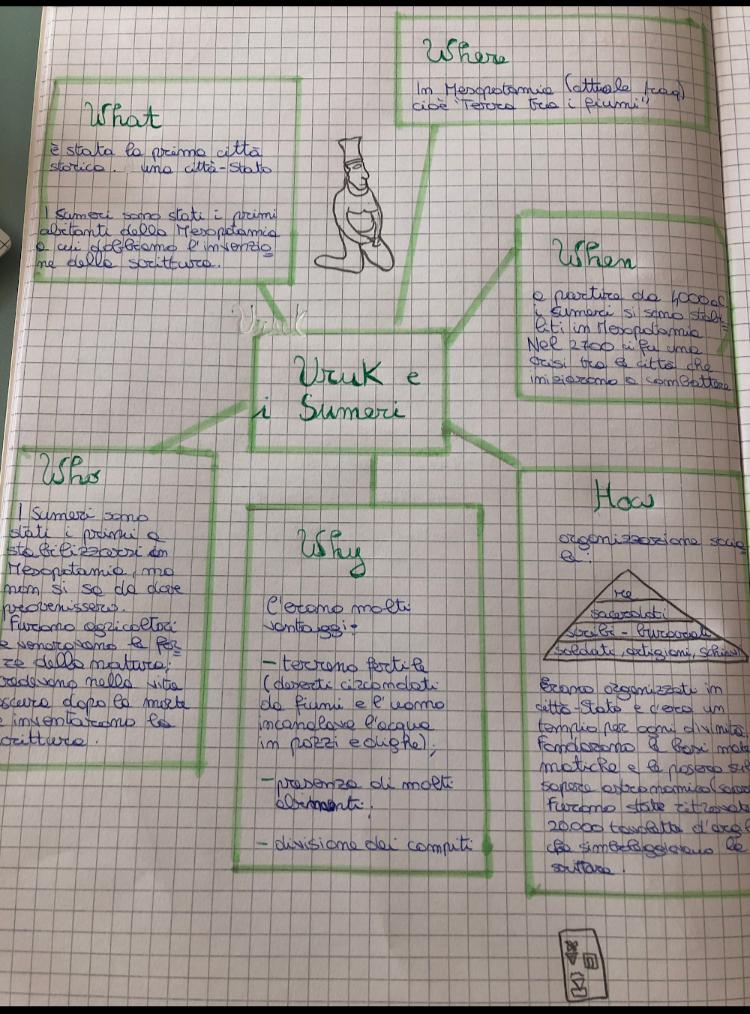 Where
In Mesopotamia (attuale Iraq)
cioè "Terra tra i fiumi"
What
è stata la prima città
storica. una città-stato
I Sumeri sono stati i primi
abitanti della Mesopotamia
a cui dobbiamo l'invenzio
ne della scrittura.
When
a partire da 4000 aC
i sumeri si sono stabi=
lati in Mesopotamia
Nel 2700 ci fu una
crisi tra le città che
iniziarono a combattere
Uruk
Uruk e
i Sumeri
Who
I Sumeri sono
stati i primi a
stabilizzarsi in
Mesopotamia, ma
non si sa da dove
provenissero.
Furono agricoltori
e veneravano le for=
ze della natura;
credevano nella vita
oscura dopo la morte
e inventarono la
scrittura.
Why
C'erano molti
vantaggi:
- terreno fertile
(deserti circondati
da fiumi e l'uomo
incanalava l'acqua
in pozzi e dighe);
- presenza di molti
alimenti;
- divisione dei computi
How
organizzazione
re
sacerdoti
scribi - burocrati
soldati, artigiani, schiavi
Erano organizzati in
città-stato e c'era un
tempio per ogni divinità
Fondarono le basi mate
matiche e la
sapere astronomico
Furono state ritrovate
20.000 tavolette d'argi
che simboleggiano la